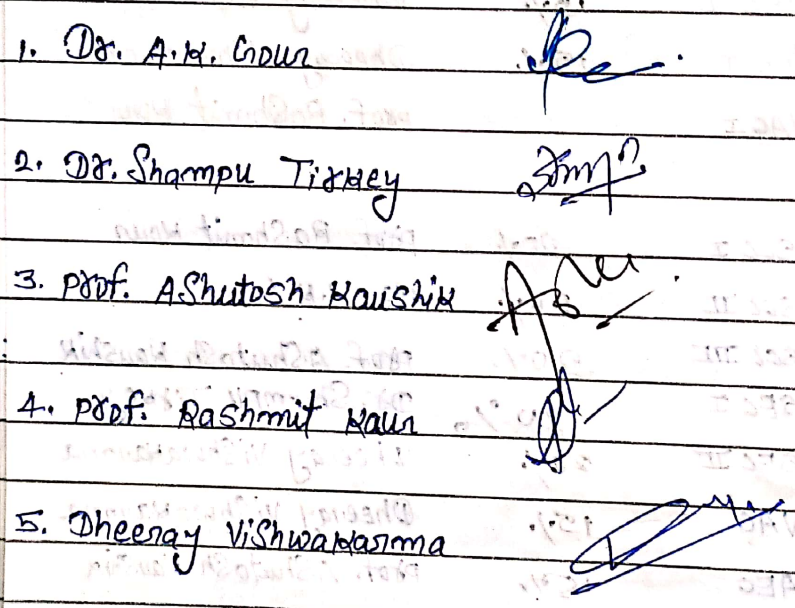 1. Dr. A.K. Gour
2. Dr. Shampu Tirkey
3. Prof. AShutosh Kaushik
4. Prof. Rashmit Kaur
5. Dheeraj ViShwakarma